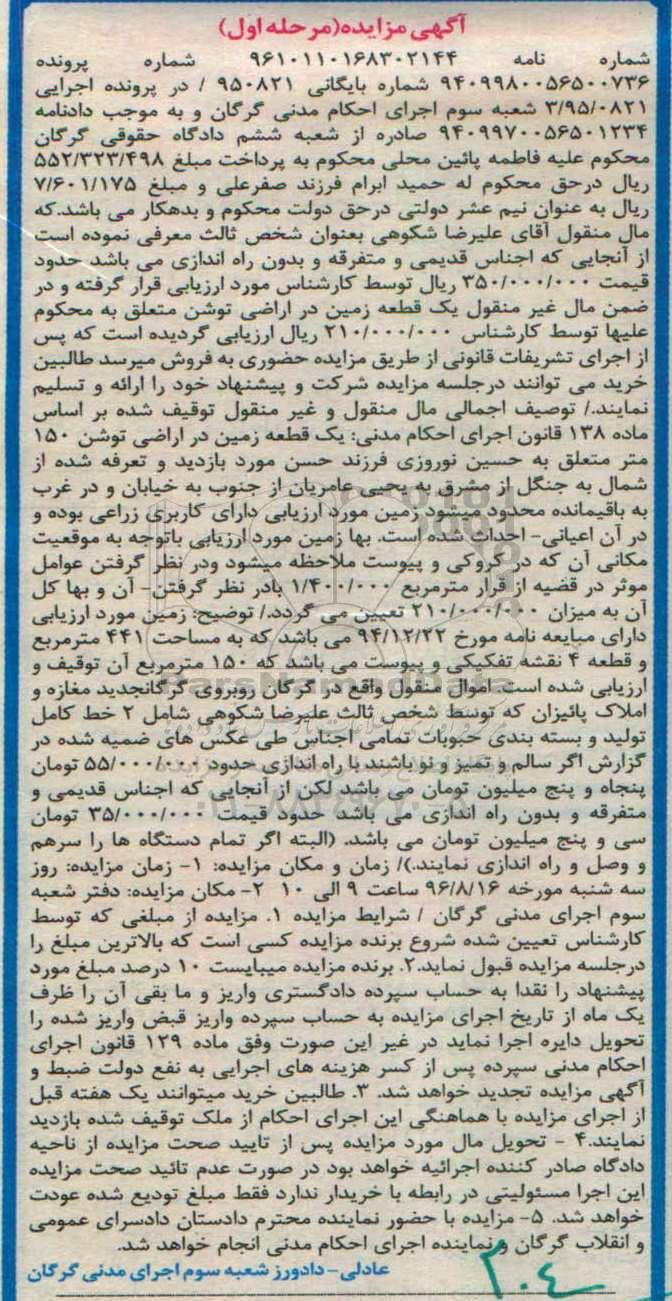 آگهی مزایده(مرحله اول)
شماره نامه ۹۶۱۰۱۱۰۱۶۸۳۰۲۱۴۴ شماره پرونده
۹۴۰۹۹۸۰۰۵۶۵۰۰۷۳۶ شماره بایگانی ۹۵۰۸۲۱ / در پرونده اجرایی
۳/۹۵/۰۸۲۱ شعبه سوم اجرای احکام مدنی گرگان و به موجب دادنامه
۹۴۰۹۹۷۰۰۵۶۵۰۱۲۳۴ صادره از شعبه ششم دادگاه حقوقی گرگان
محکوم علیه فاطمه پائین محلی محکوم به پرداخت مبلغ ۵۵۲/۳۲۳/۴۹۸
ریال درحق محکوم له حمید ابرام فرزند صفرعلی و مبلغ ۷/۶۰۱/۱۷۵
ریال به عنوان نیم عشر دولتی درحق دولت محکوم و بدهکار می باشد.که
مال منقول آقای علیرضا شکوهی بعنوان شخص ثالث معرفی نموده است
از آنجایی که اجناس قدیمی و متفرقه و بدون راه اندازی می باشد حدود
قیمت ۳۵۰/۰۰۰/۰۰۰ ریال توسط کارشناس مورد ارزیابی قرار گرفته و در
ضمن مال غیر منقول یک قطعه زمین در اراضی توشن متعلق به محکوم
علیها توسط کارشناس ۲۱۰/۰۰۰/۰۰۰ ریال ارزیابی گردیده است که پس
از اجرای تشریفات قانونی از طریق مزایده حضوری به فروش میرسد طالبین
خرید می توانند درجلسه مزایده شرکت و پیشنهاد خود را ارائه و تسلیم
نمایند./ توصیف اجمالی مال منقول و غیر منقول توقیف شده بر اساس
ماده ۱۳۸ قانون اجرای احکام مدنی: یک قطعه زمین در اراضی توشن ۱۵۰
متر متعلق به حسین نوروزی فرزند حسن مورد بازدید و تعرفه شده از
شمال به جنگل از مشرق به یحیی عامریان از جنوب به خیابان و در غرب
به باقیمانده محدود میشود زمین مورد ارزیابی دارای کاربری زراعی بوده و
در آن اعیانی- احداث شده است. بها زمین مورد ارزیابی باتوجه به موقعیت
مکانی آن که در کروکی و پیوست ملاحظه میشود ودر نظر گرفتن عوامل
موثر در قضیه از قرار مترمربع ۱/۴۰۰/۰۰۰ بادر نظر گرفتن- آن و بها کل
آن به میزان ۲۱۰/۰۰۰/۰۰۰ تعیین می گردد./ توضیح: زمین مورد ارزیابی
دارای مبایعه نامه مورخ ۹۴/۱۲/۲۲ می باشد که به مساحت ۴۴۱ مترمربع
و قطعه ۴ نقشه تفکیکی و پیوست می باشد که ۱۵۰ مترمربع آن توقیف و
ارزیابی شده است. اموال منقول واقع در گرگان روبروی گرگانجدید مغازه و
املاک پائیزان که توسط شخص ثالث علیرضا شکوهی شامل ۲ خط کامل
تولید و بسته بندی حبوبات تمامی اجناس طی عکس های ضمیه شده در
گزارش اگر سالم و تمیز و نو باشند با راه اندازی حدود ۵۵/۰۰۰/۰۰۰ تومان
پنجاه و پنج میلیون تومان می باشد لکن از آنجایی که اجناس قدیمی و
متفرقه و بدون راه اندازی می باشد حدود قیمت ۳۵/۰۰۰/۰۰۰ تومان
سی و پنج میلیون تومان می باشد. (البته اگر تمام دستگاه ها را سرهم
و وصل و راه اندازی نمایند.)/ زمان و مکان مزایده: ۱- زمان مزایده: روز
سه شنبه مورخه ۹۶/۸/۱۶ ساعت ۹ الی ۱۰ ۲- مکان مزایده: دفتر شعبه
سوم اجرای مدنی گرگان / شرایط مزایده ۱. مزایده از مبلغی که توسط
کارشناس تعیین شده شروع برنده مزایده کسی است که بالاترین مبلغ را
درجلسه مزایده قبول نماید.۲. برنده مزایده میبایست ۱۰ درصد مبلغ مورد
پیشنهاد را نقدا به حساب سپرده دادگستری واریز و ما بقی آن را ظرف
یک ماه از تاریخ اجرای مزایده به حساب سپرده واریز قبض واریز شده را
تحویل دایره اجرا نماید در غیر این صورت وفق ماده ۱۲۹ قانون اجرای
احکام مدنی سپرده پس از کسر هزینه های اجرایی به نفع دولت ضبط و
آگهی مزایده تجدید خواهد شد. ۳. طالبین خرید میتوانند یک هفته قبل
از اجرای مزایده با هماهنگی این اجرای احکام از ملک توقیف شده بازدید
نمایند.۴ - تحویل مال مورد مزایده پس از تایید صحت مزایده از ناحیه
دادگاه صادر کننده اجرائیه خواهد بود در صورت عدم تائید صحت مزایده
این اجرا مسئولیتی در رابطه با خریدار ندارد فقط مبلغ تودیع شده عودت
خواهد شد. ۵- مزایده با حضور نماینده محترم دادستان دادسرای عمومی
و انقلاب گرگان و نماینده اجرای احکام مدنی انجام خواهد شد.
عادلی- دادورز شعبه سوم اجرای مدنی گرگان
۲۰۴
ParsNamadData